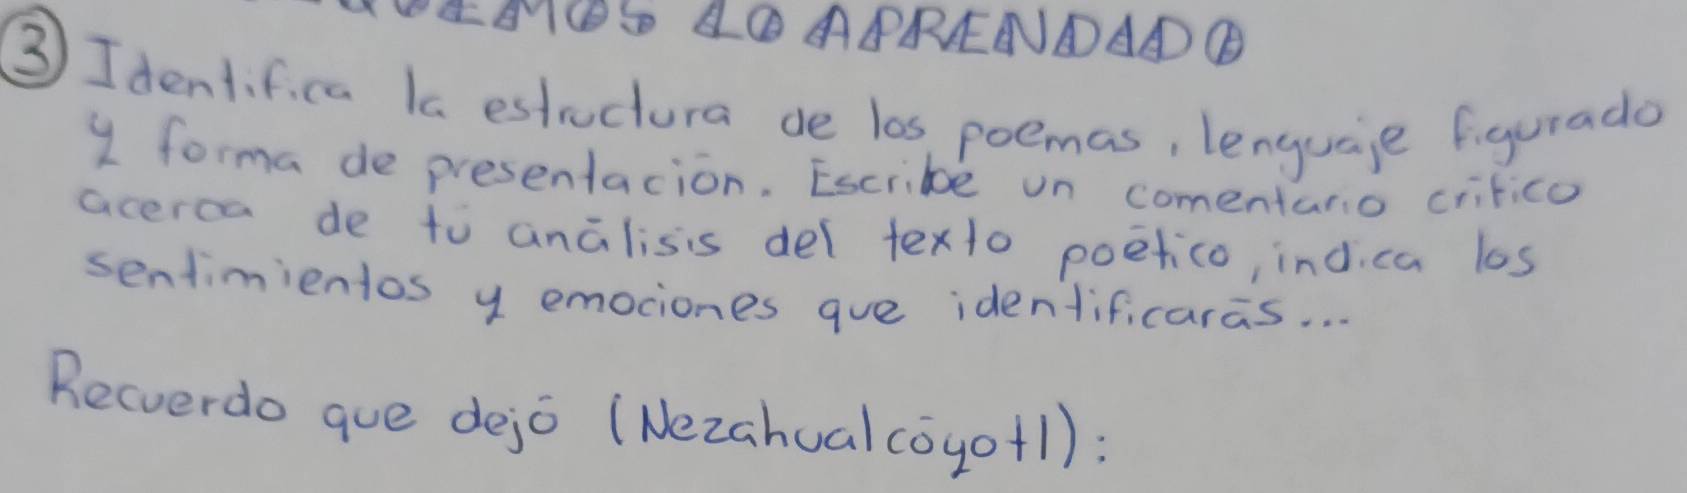 LO APRENDADO
③ Identifica la estructura de los poemas, lenguaje figurado
y forma de presentación. Escribe un comentario crítico
acerca de tú análisis del texto poético, indica los
sentimientos y emociones que identificarás...
Recuerdo que dejó (Nezahualcóyotl):